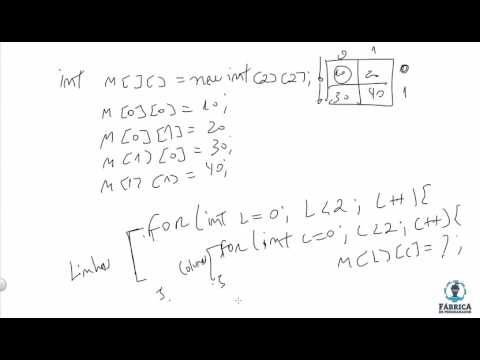 int M[][] = new int[2][2];
0 1
10 20 0
30 40 1
M[0][0] = 10;
M[0][1] = 20
M[1][0] = 30;
M[1][1] = 40;
for(int L=0; L<2; L++){
Linhas
Coluna for(int c=0; c<2; c++){
M[L][c] = ?;
}
}
FÁBRICA
DE PROGRAMADOR